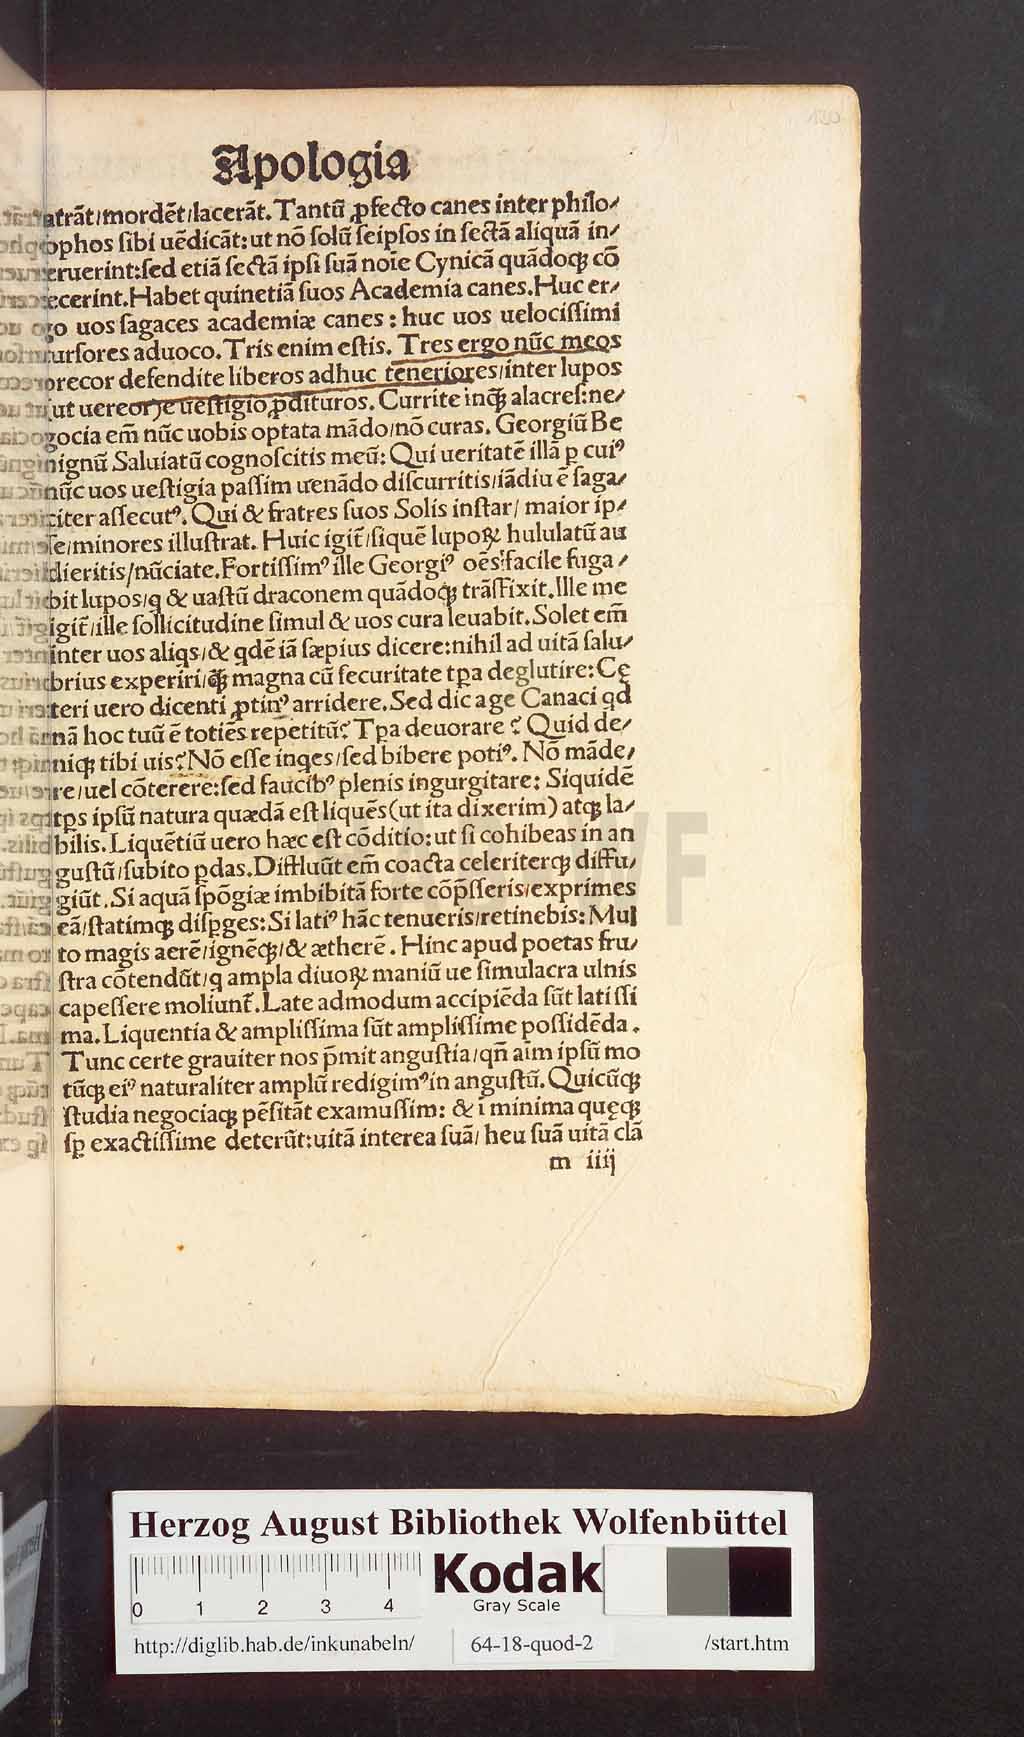 Apologia
atrāt/mordēt/lacerāt. Tantū ꝓfecto canes inter philo⸗
ophos ſibi uēdicāt: ut nō ſolū ſeipſos in ſectā aliquā in⸗
eruerint: ſed etiā ſectā ipſi ſuā noīe Cynicā quādoqꝫ cō
ecerint. Habet quinetiā ſuos Academia canes. Huc er⸗
go uos ſagaces academiæ canes: huc uos uelociſſimi
urſores aduoco. Tris enim eſtis. Tres ergo nūc meos
precor defendite liberos adhuc teneriores/inter lupos
ut uereor/e ueſtigio ꝓdituros. Currite inqꝫ alacreſ: ne⸗
gocia em̄ nūc uobis optata mādo/nō curas. Georgiū Be
nignū Saluiatū cognoſcitis meū: Qui ueritatē illā ꝑ cuiꝰ
nūc uos ueſtigia paſſim uenādo diſcurritis/iādiu ē ſaga⸗
citer aſſecutꝰ. Qui & fratres ſuos Solis inſtar/ maior ip⸗
ſe/minores illuſtrat. Huic igit̄/ſiquē lupoꝝ hululatū au
dieritis/nūciate. Fortiſſimꝰ ille Georgiꝰ oēs facile fuga⸗
bit lupos/q & uaſtū draconem quādoqꝫ trāſfixit. Ille me
igit̄/ille ſollicitudine ſimul & uos cura leuabit. Solet em̄
inter uos aliqs/& qdē iā ſæpius dicere: nihil ad uitā ſalu⸗
brius experiri/qꝫ magna cū ſecuritate tꝑa deglutire: Cę
teri uero dicenti ꝓtinꝰ arridere. Sed dic age Canaci qd
nā hoc tuū ē totiēs repetitū? Tꝑa deuorare? Quid de⸗
niqꝫ tibi uis? Nō eſſe inqes/ſed bibere potiꝰ. Nō māde⸗
re/uel cōterere: ſed faucibꝰ plenis ingurgitare: Siquidē
tꝑs ipſū natura quædā eſt liquēs (ut ita dixerim) atqꝫ la⸗
bilis. Liquētiū uero hæc eſt cōditio: ut ſi cohibeas in an
guſtū/ſubito ꝑdas. Diffluūt em̄ coacta celeriterqꝫ diffu⸗
giūt. Si aquā ſpōgiæ imbibitā forte cōp̄ſſeris/exprimes
eā/ſtatimqꝫ diſꝑges: Si latiꝰ hāc tenueris/retinebis: Mul
to magis aerē/ignēqꝫ/& ætherē. Hinc apud poetas fru⸗
ſtra cōtendūt/q ampla diuoꝝ maniū ue ſimulacra ulnis
capeſſere moliunt̄. Late admodum accipiēda ſūt latiſſi
ma. Liquentia & ampliſſima ſūt ampliſſime poſſidēda.
Tunc certe grauiter nos p̄mit anguſtia/qn̄ aīm ipſū mo
tūqꝫ eiꝰ naturaliter amplū redigimꝰ in anguſtū. Quicūqꝫ
ſtudia negociaqꝫ pēſitāt examuſſim: & ī minima quęqꝫ
ſꝑ exactiſſime deterūt: uitā interea ſuā/ heu ſuā uitā clā
m iiij
Herzog August Bibliothek Wolfenbüttel
0 1 2 3 4
Kodak
Gray Scale
http://diglib.hab.de/inkunabeln/ 64-18-quod-2 /start.htm